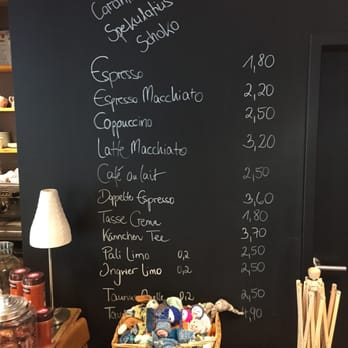 Spekulatius
Schoko
Espresso 1,80
Espresso Macchiato 2,20
Cappuccino 2,50
Latte Macchiato 3,20
Café au lait 2,50
Doppelto Espresso 3,60
Tasse Crema 1,80
Kännchen Tee 3,70
Pali Limo 0,2 2,50
Ingwer Limo 0,2 2,50
0,2 2,50
4,90